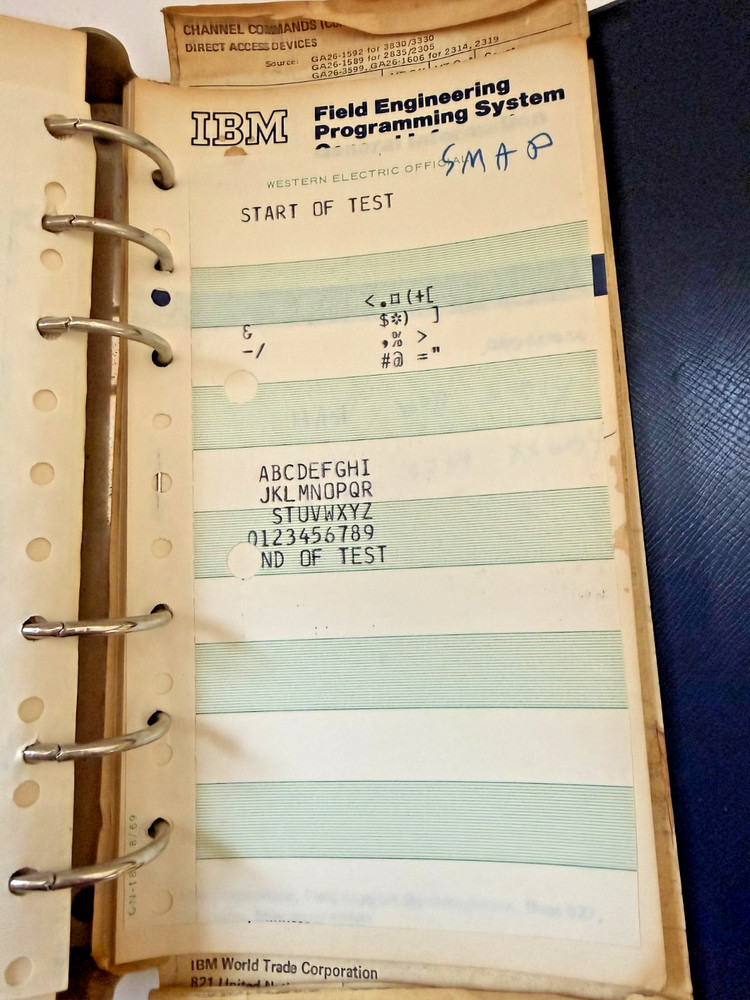 CHANNEL COMMANDS
DIRECT ACCESS DEVICES
Source: GA26-1592 for 3830/3330
GA26-1589 for 2835/2305
GA26-3599, GA26-1606 for 2314, 2319
IBM
Field Engineering
Programming System
General Information
SMAP
WESTERN ELECTRIC OFFICIAL
START OF TEST
<.¤(+[
& $*) ]
-/ ,% >
#@ ="
ABCDEFGHI
JKLMNOPQR
STUVWXYZ
0123456789
ND OF TEST
8/69
IBM World Trade Corporation
821 United